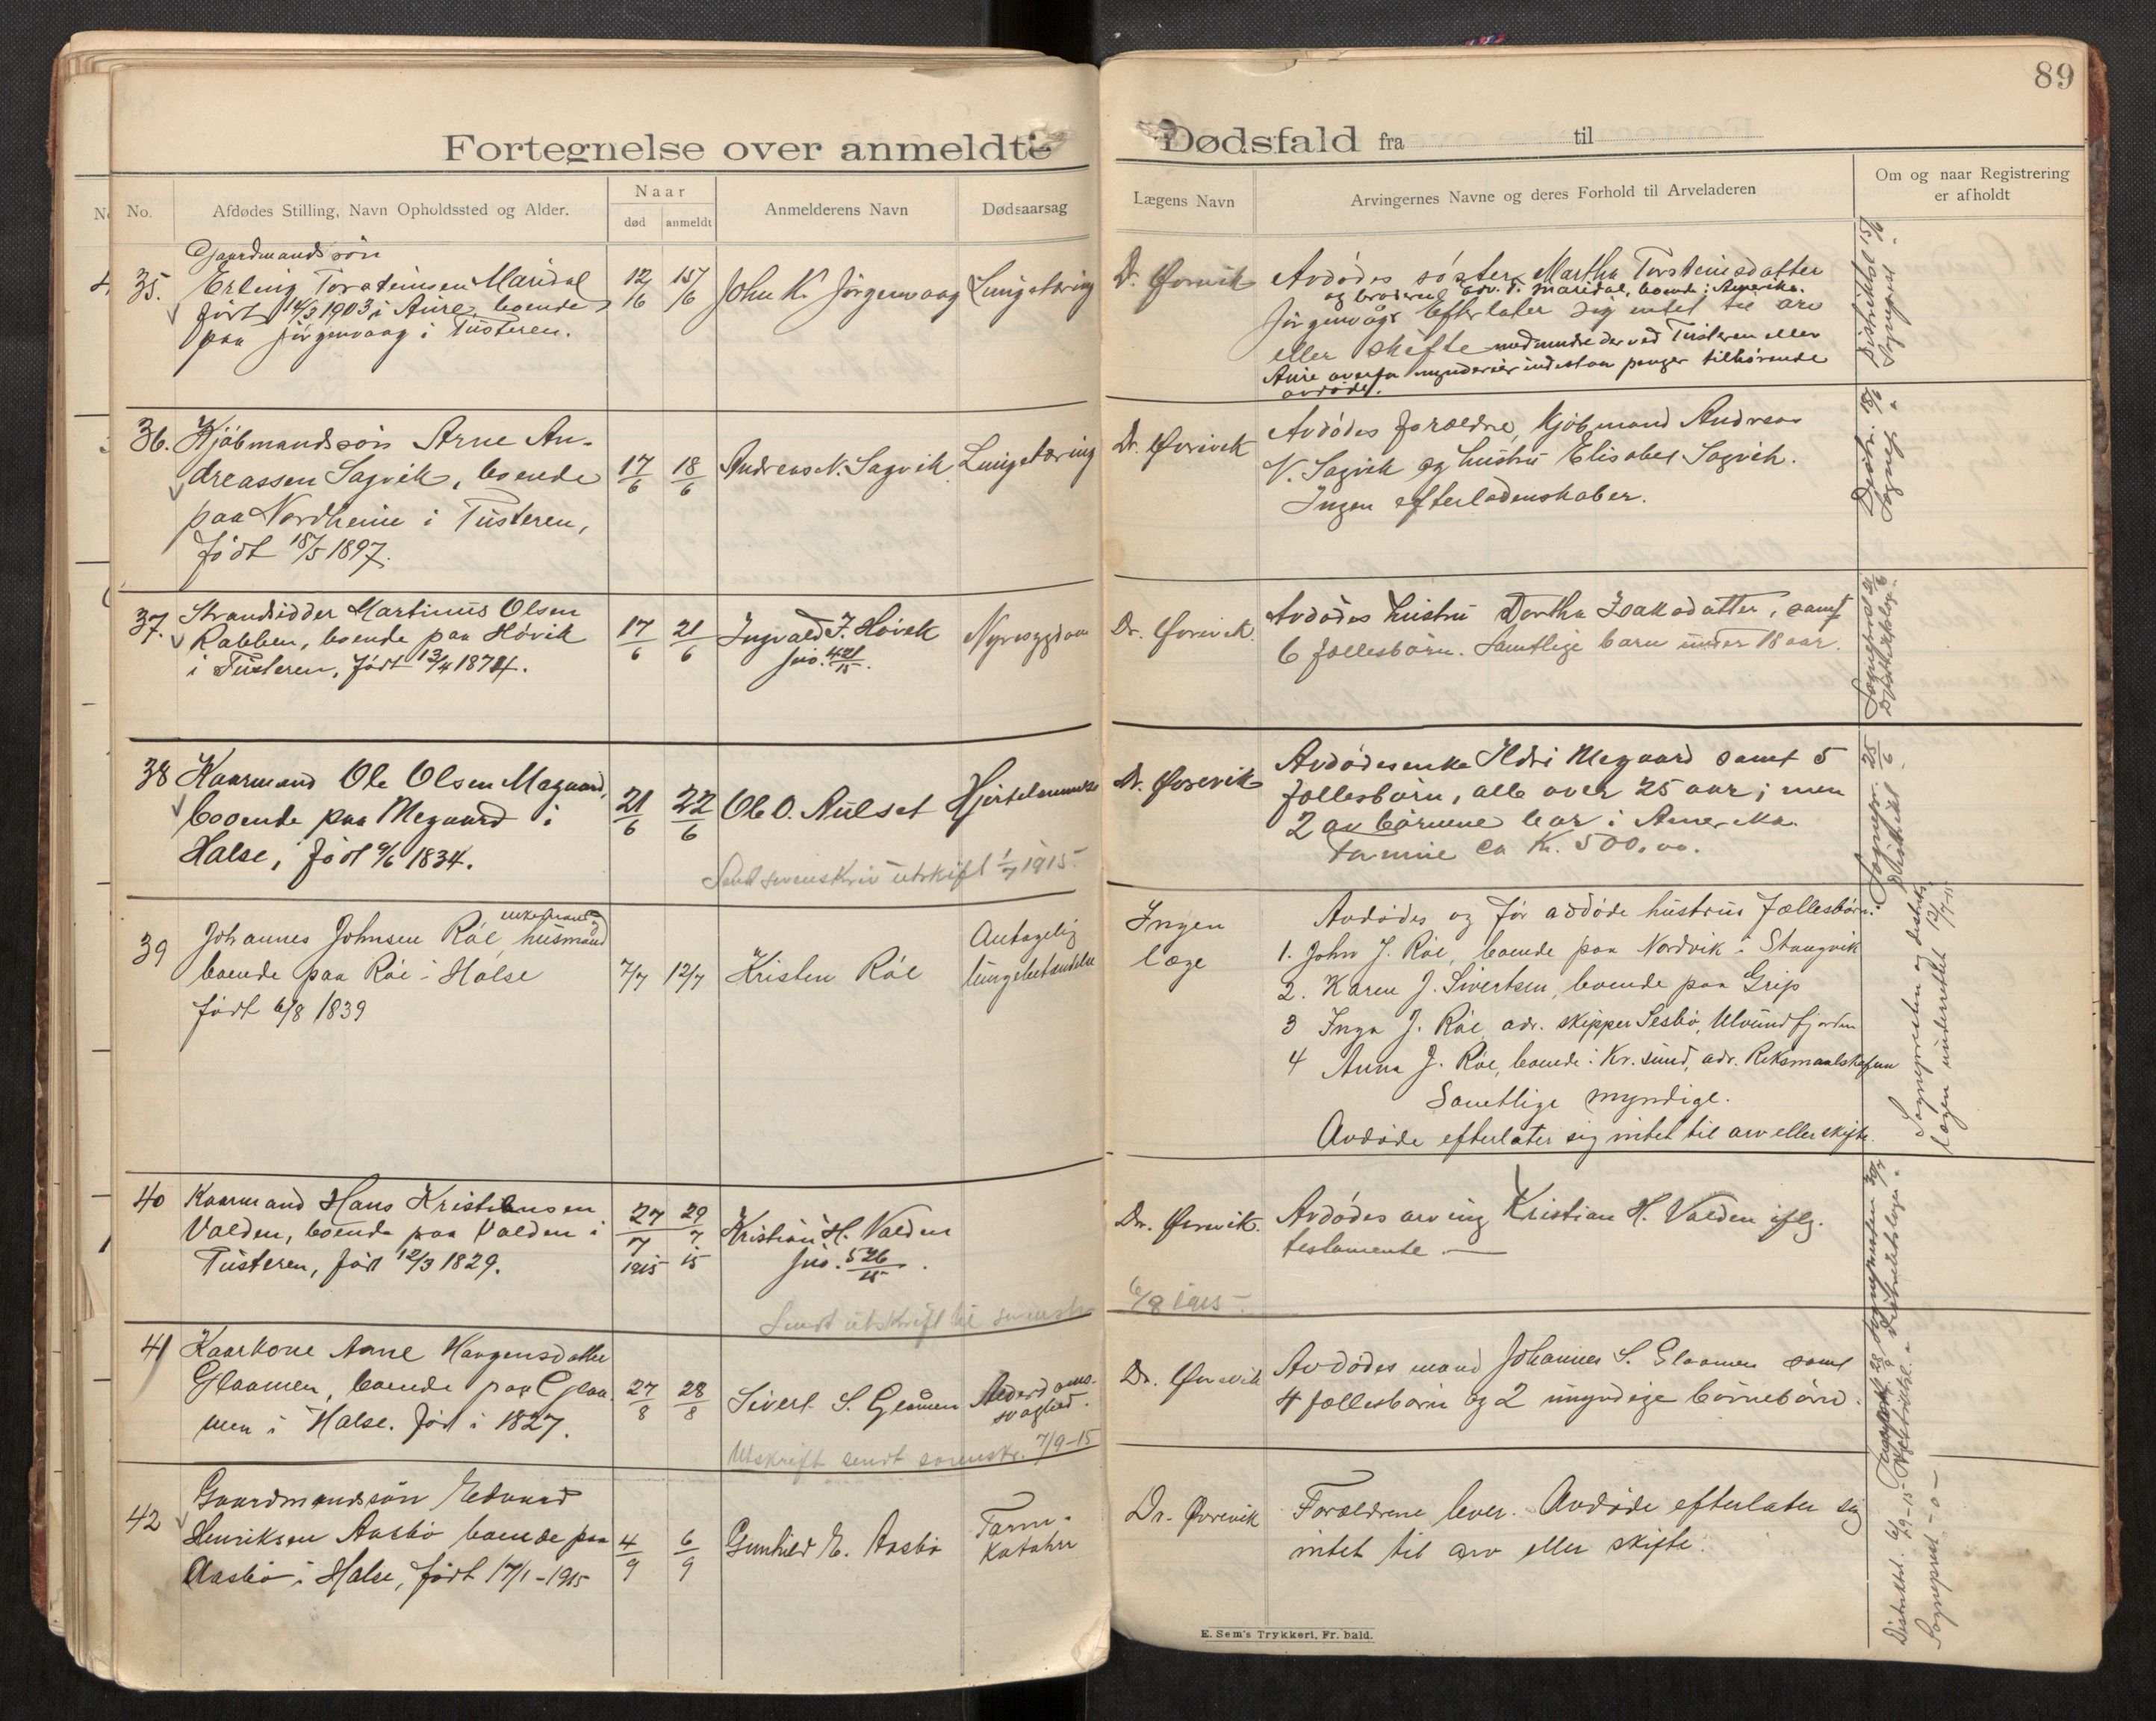 89
Fortegnelse over anmeldte Dødsfald fra til
No.
Afdødes Stilling, Navn Opholdssted og Alder.
Naar
død
anmeldt
Anmelderens Navn
Dødsaarsag
Lægens Navn
Arvingernes Navne og deres Forhold til Arveladeren
Om og naar Registrering
er afholdt
35.
Gaardmandssøn
Erling Torsteinsen Maridal
født 14/3 1903 i Aure, boende
paa Jørgenvaag i Tusteren.
12/6
15/6
John K. Jørgenvaag
Lungetæring
Dr. Ørevik
Avdødes søster Martha Torsteinsdatter
og broderen adv. T. Maridal, boende i Amerika.
Jørgenvåg. Efterlater sig intet til arv
eller skifte medmindre der ved Tusteren eller
Aure overfor indestaar penger tilhørende
avdøde.
Distriktsl. 15/6
Sognepr. "
36.
Kjøbmandssøn Arne An-
dreassen Sagvik, boende
paa Nordheim i Tusteren,
født 18/5 1897.
17/6
18/6
Andreas N. Sagvik
Lungetæring
Dr. Ørevik
Avdødes forældre, Kjøbmand Andreas
N. Sagvik og hustru Elisabet Sagvik.
Ingen efterladenskaber.
Distr. 18/6
Sognepr. "
37.
Strandsidder Martinus Olsen
Rabben, boende paa Høvik
i Tusteren, født 13/4 1874.
17/6
21/6
Ingvald J. Høvik
jno. 421/15.
Nyresygdom
Dr. Ørevik.
Avdødes hustru Dortha Isaksdatter, samt
6 fællesbørn. Samtlige barn under 18 aar.
38
Kaarmand Ole Olsen Megaard,
boende paa Megaard i
Halse, født 9/6 1834.
21/6
22/6
Ole O. Aulset
Hjertelammelse
Sendt sorenskriv utskrift 1/7 1915.
Dr. Ørevik
Avdødes enke Ildri Megaard samt 5
fællesbørn, alle over 25 aar; men
2 av børnene bor i Amerika.
Formue ca Kr. 500,00.
Sognepr. 25/6
Distriktsl. "
39
Johannes Johnsen Røe enkemand og husmand
boende paa Røe i Halse
født 6/8 1839
7/7
12/7
Kristen Røe
Antagelig
lungebetændelse
Ingen
læge
Avdødes og før avdøde hustrus Fællesbørn:
1. John J. Røe, boende paa Nordvik i Stangvik
2. Karen J. Sivertsen, boende paa Grip
3 Inga J. Røe, adr. skipper Sesbø, Ulvundfjorden
4 Anna J. Røe, boende i Kr.sund, adr. Riksmaalskafeen
Samtlige myndige.
Avdøde efterlater sig intet til arv eller skifte.
Sognepresten og distrikts-
lægen underrettet 12/7-15.
40
Kaarmand Hans Kristiansen
Valden, boende paa Valden i
Tusteren, født 12/3 1829.
27/7 1915
29/7 15
Kristian H. Valden
jno. 526/15.
Sendt utskrift til sorenskr.
Dr. Ørevik.
Avdødes arving Kristian H. Valden iflg.
testamente.
6/8 1915.
Sognepresten 30/7
Distriktslægen "
41
Kaarkone Anne Haagensdatter
Glaamen, boende paa Glaa
men i Halse. Født i 1827.
27/8
28/8
Sivert S. Glåmen
Alderdoms-
svaghed.
Utskrift sendt sorenskr. 7/9-15
Dr. Ørevik
Avdødes mand Johannes S. Glaamen samt
4 fællesbørn og 2 umyndige børnebørn.
42
Gaardmandssøn Edvard
Henriksen Aasbø boende paa
Aasbø i Halse, født 17/1-1915
4/9
6/9
Gunhild E. Aasbø
Tarm-
katahr
Dr. Ørevik
Forældrene lever. Avdøde efterlater sig
intet til arv eller skifte.
Distriktsl. 6/9-15
Sogneprest -o-
E. Sem's Trykkeri, Fr.hald.